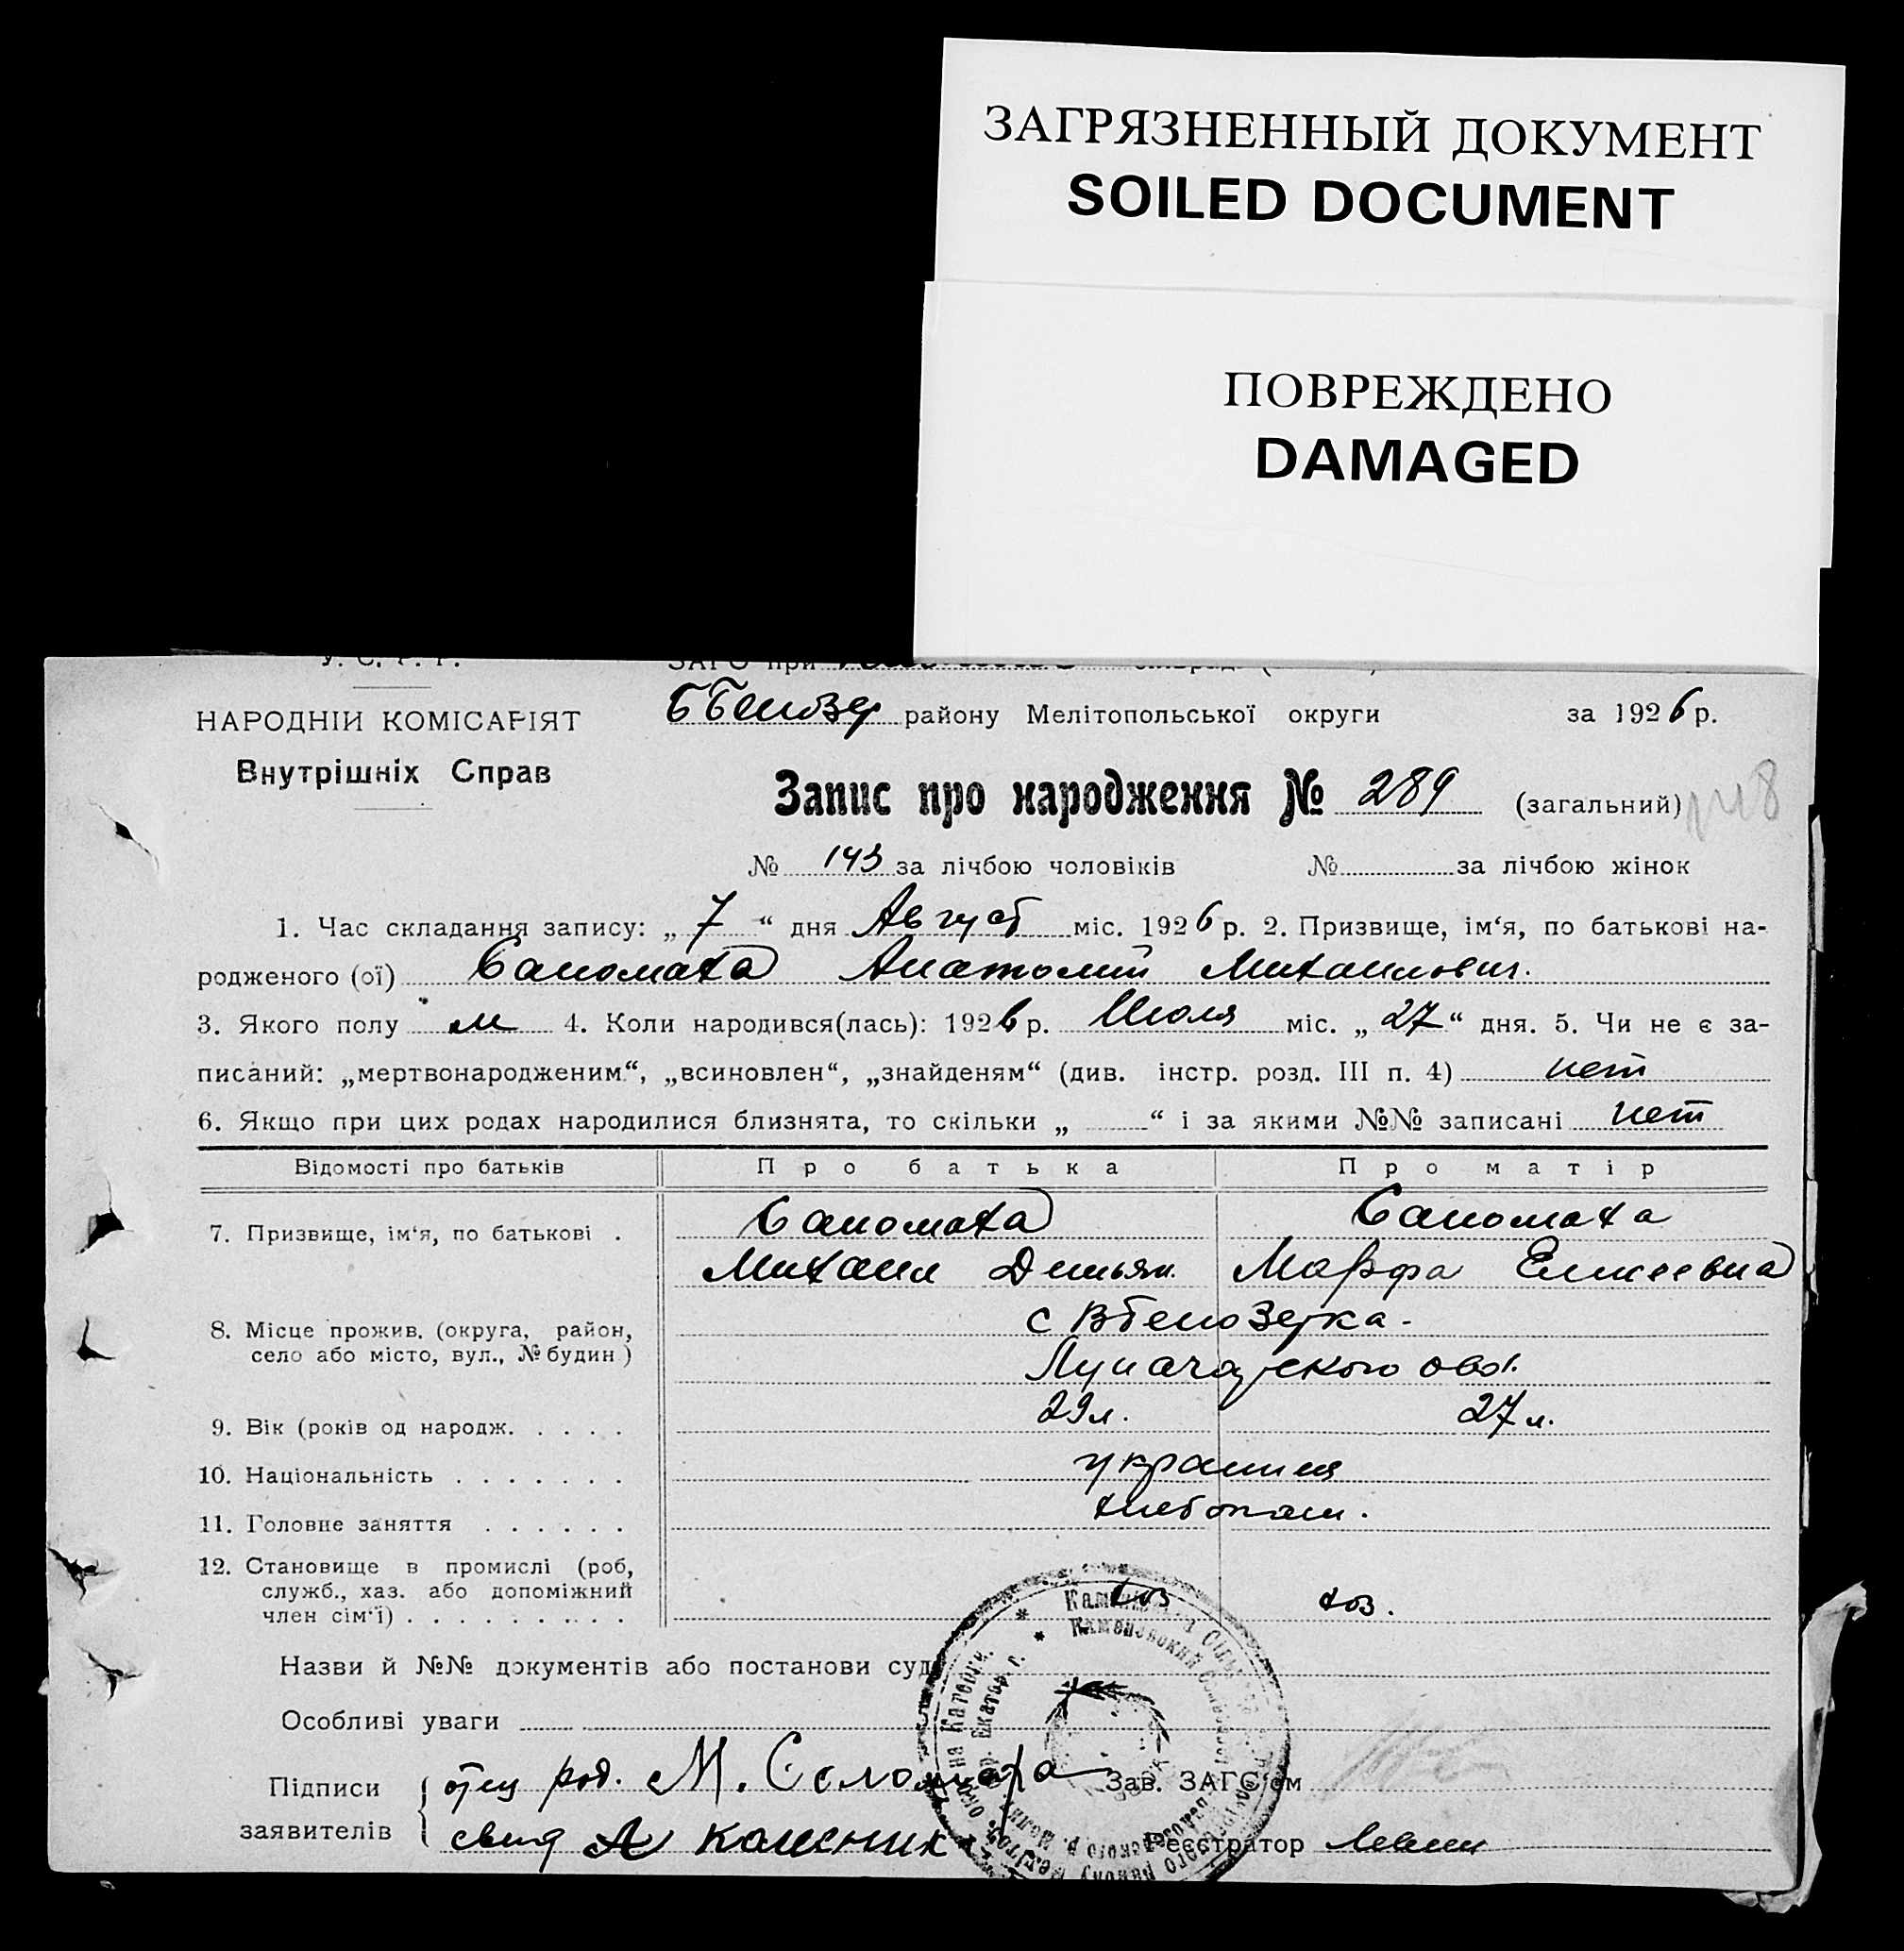 ЗАГРЯЗНЕННЫЙ ДОКУМЕНТ
SOILED DOCUMENT
ПОВРЕЖДЕНО
DAMAGED
У. С. Р. Р.
ЗАГС при
НАРОДНІЙ КОМІСАРІЯТ
Внутрішніх Справ
району Мелітопольської округи за 1926 р.
Запис про народження № 289 (загальний)
№ 143 за лічбою чоловіків № за лічбою жінок
1. Час складання запису: „ 7 “ дня Август міс. 1926 р. 2. Призвище, ім‘я, по батькові на-
родженого (ої) Саломаха Анатолий Михайлович.
3. Якого полу м 4. Коли народився(лась): 1926 р. Июля міс. „ 27 “ дня. 5. Чи не є за-
писаний: „мертвонародженим“, „всиновлен“, „знайденям“ (див. інстр. розд. III п. 4) нет
6. Якщо при цих родах народилися близнята, то скільки „ “ і за якими №№ записані нет
Відомості про батьків Про батька Про матір
7. Призвище, ім‘я, по батькові . Саломаха Саломаха
Михаил Демьян. Марфа Елисеевна
8. Місце прожив. (округа, район, с Вбелозерка.
село або місто, вул., № будин)
9. Вік (років од народж. . . . . 29 л. 27 л.
10. Національність . . . . . . . украинця
11. Головне заняття . . . . . . хлебопаш.
12. Становище в промислі (роб,
служб., хаз. або допоміжний
член сім‘ї) . . . . . . . . . . хоз хоз.
Назви й №№ документів або постанови суд
Особливі уваги
Підписи отец род. М. Соломаха Зав. ЗАГС‘ом
заявителів свид А Колесник Реєстратор